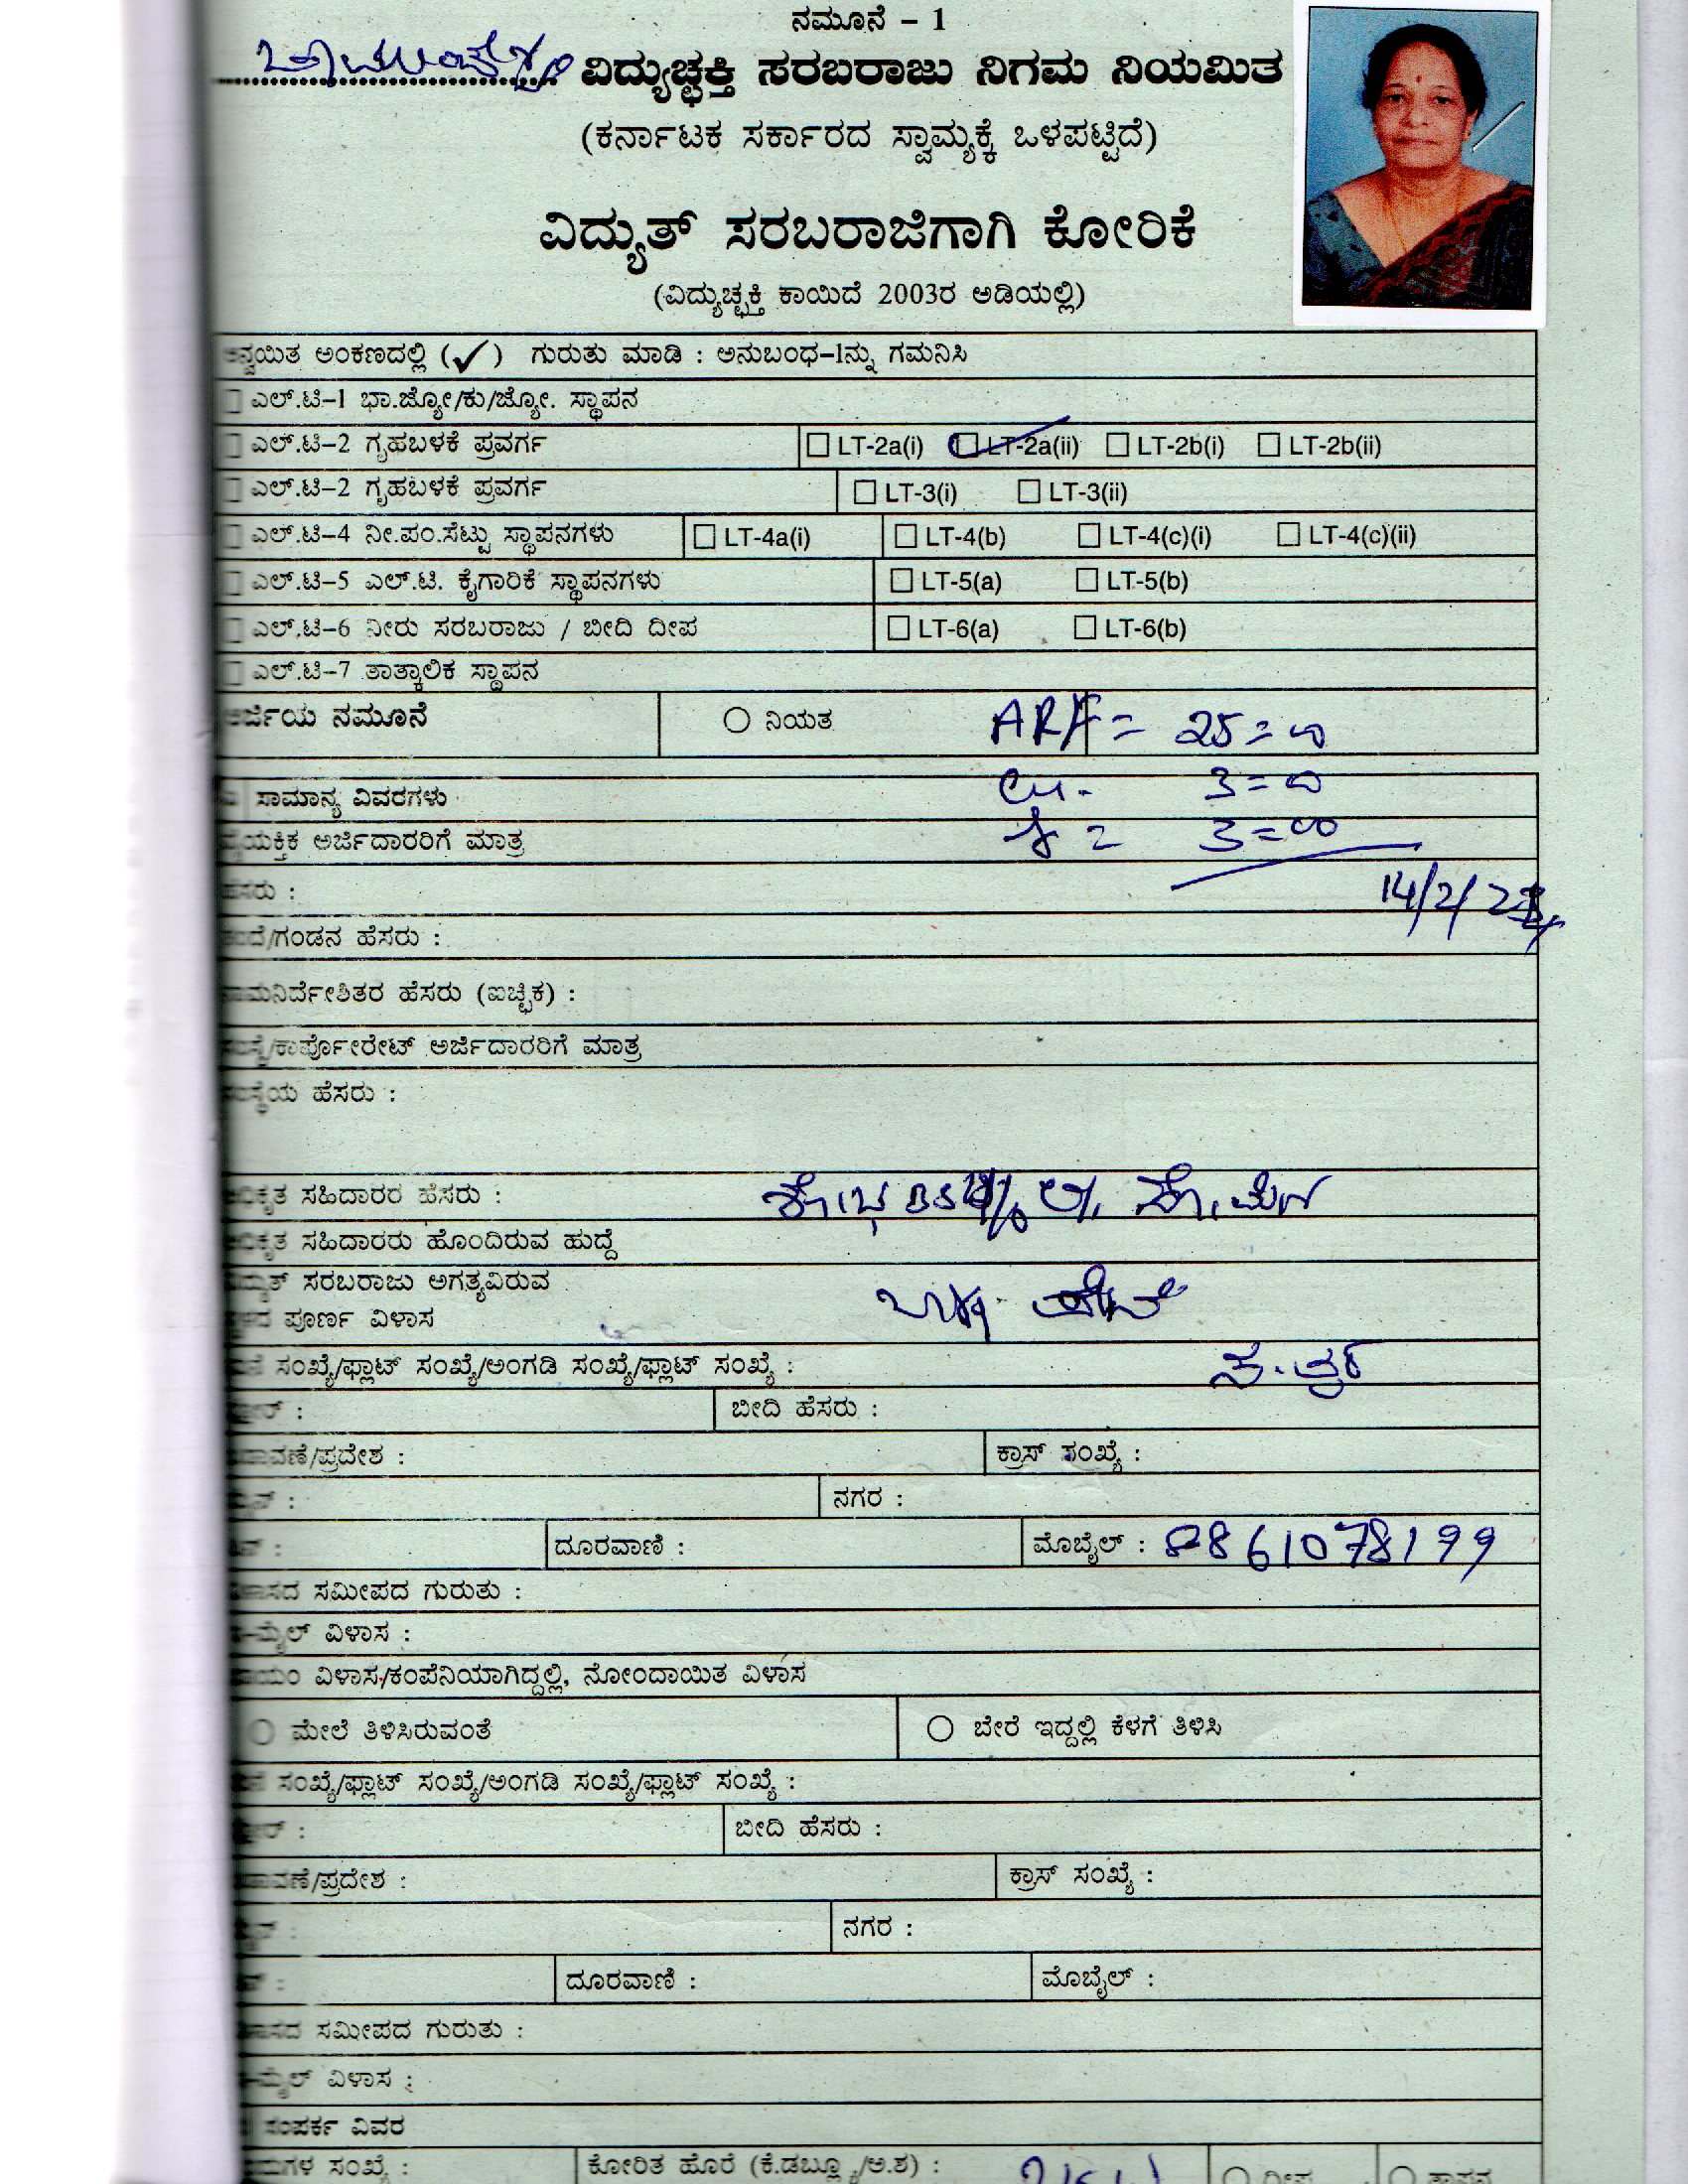 ನಮೂನೆ – 1
ವಿದ್ಯುಚ್ಛಕ್ತಿ ಸರಬರಾಜು ನಿಗಮ ನಿಯಮಿತ
(ಕರ್ನಾಟಕ ಸರ್ಕಾರದ ಸ್ವಾಮ್ಯಕ್ಕೆ ಒಳಪಟ್ಟಿದೆ)
ವಿದ್ಯುತ್ ಸರಬರಾಜಿಗಾಗಿ ಕೋರಿಕೆ
(ವಿದ್ಯುಚ್ಛಕ್ತಿ ಕಾಯಿದೆ 2003ರ ಅಡಿಯಲ್ಲಿ)
ಅನ್ವಯಿತ ಅಂಕಣದಲ್ಲಿ (✓) ಗುರುತು ಮಾಡಿ : ಅನುಬಂಧ–1ನ್ನು ಗಮನಿಸಿ
ಎಲ್.ಟಿ–1 ಭಾ.ಜ್ಯೋ/ಕು/ಜ್ಯೋ. ಸ್ಥಾಪನ
ಎಲ್.ಟಿ–2 ಗೃಹಬಳಕೆ ಪ್ರವರ್ಗ LT-2a(i) LT-2a(ii) LT-2b(i) LT-2b(ii)
ಎಲ್.ಟಿ–2 ಗೃಹಬಳಕೆ ಪ್ರವರ್ಗ LT-3(i) LT-3(ii)
ಎಲ್.ಟಿ–4 ನೀ.ಪಂ.ಸೆಟ್ಟು ಸ್ಥಾಪನಗಳು LT-4a(i) LT-4(b) LT-4(c)(i) LT-4(c)(ii)
ಎಲ್.ಟಿ–5 ಎಲ್.ಟಿ. ಕೈಗಾರಿಕೆ ಸ್ಥಾಪನಗಳು LT-5(a) LT-5(b)
ಎಲ್.ಟಿ–6 ನೀರು ಸರಬರಾಜು / ಬೀದಿ ದೀಪ LT-6(a) LT-6(b)
ಎಲ್.ಟಿ–7 ತಾತ್ಕಾಲಿಕ ಸ್ಥಾಪನ
ಅರ್ಜಿಯ ನಮೂನೆ ನಿಯತ ARF = 25=00
ಸಾಮಾನ್ಯ ವಿವರಗಳು 3=0
ವೈಯಕ್ತಿಕ ಅರ್ಜಿದಾರರಿಗೆ ಮಾತ್ರ 3=00
ಹೆಸರು : 14/2/
ತಂದೆ/ಗಂಡನ ಹೆಸರು :
ನಾಮನಿರ್ದೇಶಿತರ ಹೆಸರು (ಐಚ್ಛಿಕ) :
ಸಂಸ್ಥೆ/ಕಾರ್ಪೋರೇಟ್ ಅರ್ಜಿದಾರರಿಗೆ ಮಾತ್ರ
ಸಂಸ್ಥೆಯ ಹೆಸರು :
ಅಧಿಕೃತ ಸಹಿದಾರರ ಹೆಸರು :
ಅಧಿಕೃತ ಸಹಿದಾರರು ಹೊಂದಿರುವ ಹುದ್ದೆ
ವಿದ್ಯುತ್ ಸರಬರಾಜು ಅಗತ್ಯವಿರುವ
ಸ್ಥಳದ ಪೂರ್ಣ ವಿಳಾಸ
ಮನೆ ಸಂಖ್ಯೆ/ಫ್ಲಾಟ್ ಸಂಖ್ಯೆ/ಅಂಗಡಿ ಸಂಖ್ಯೆ/ಫ್ಲಾಟ್ ಸಂಖ್ಯೆ :
ಬೀದಿ ಹೆಸರು :
ಬಡಾವಣೆ/ಪ್ರದೇಶ : ಕ್ರಾಸ್ ಸಂಖ್ಯೆ :
ನಗರ :
ದೂರವಾಣಿ : ಮೊಬೈಲ್ : 8861078199
ವಿಳಾಸದ ಸಮೀಪದ ಗುರುತು :
ಇ–ಮೈಲ್ ವಿಳಾಸ :
ಖಾಯಂ ವಿಳಾಸ/ಕಂಪೆನಿಯಾಗಿದ್ದಲ್ಲಿ, ನೋಂದಾಯಿತ ವಿಳಾಸ
ಮೇಲೆ ತಿಳಿಸಿರುವಂತೆ ಬೇರೆ ಇದ್ದಲ್ಲಿ ಕೆಳಗೆ ತಿಳಿಸಿ
ಮನೆ ಸಂಖ್ಯೆ/ಫ್ಲಾಟ್ ಸಂಖ್ಯೆ/ಅಂಗಡಿ ಸಂಖ್ಯೆ/ಫ್ಲಾಟ್ ಸಂಖ್ಯೆ :
ಬೀದಿ ಹೆಸರು :
ಬಡಾವಣೆ/ಪ್ರದೇಶ : ಕ್ರಾಸ್ ಸಂಖ್ಯೆ :
ನಗರ :
ದೂರವಾಣಿ : ಮೊಬೈಲ್ :
ವಿಳಾಸದ ಸಮೀಪದ ಗುರುತು :
ಇ–ಮೈಲ್ ವಿಳಾಸ :
ಸಂಪರ್ಕ ವಿವರ
ಸಂಖ್ಯೆ : ಕೋರಿತ ಹೊರೆ (ಕೆ.ಡಬ್ಲ್ಯೂ/ಅ.ಶ) :